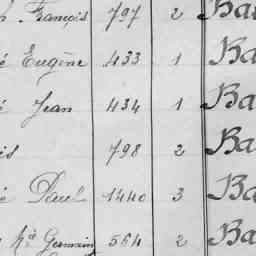 h François 797 2 Ba
é Eugène 433 1 Ba
é Jean 434 1 Ba
is 798 2 Ba
é Paul 1440 3 Ba
Germain 564 2 Ba